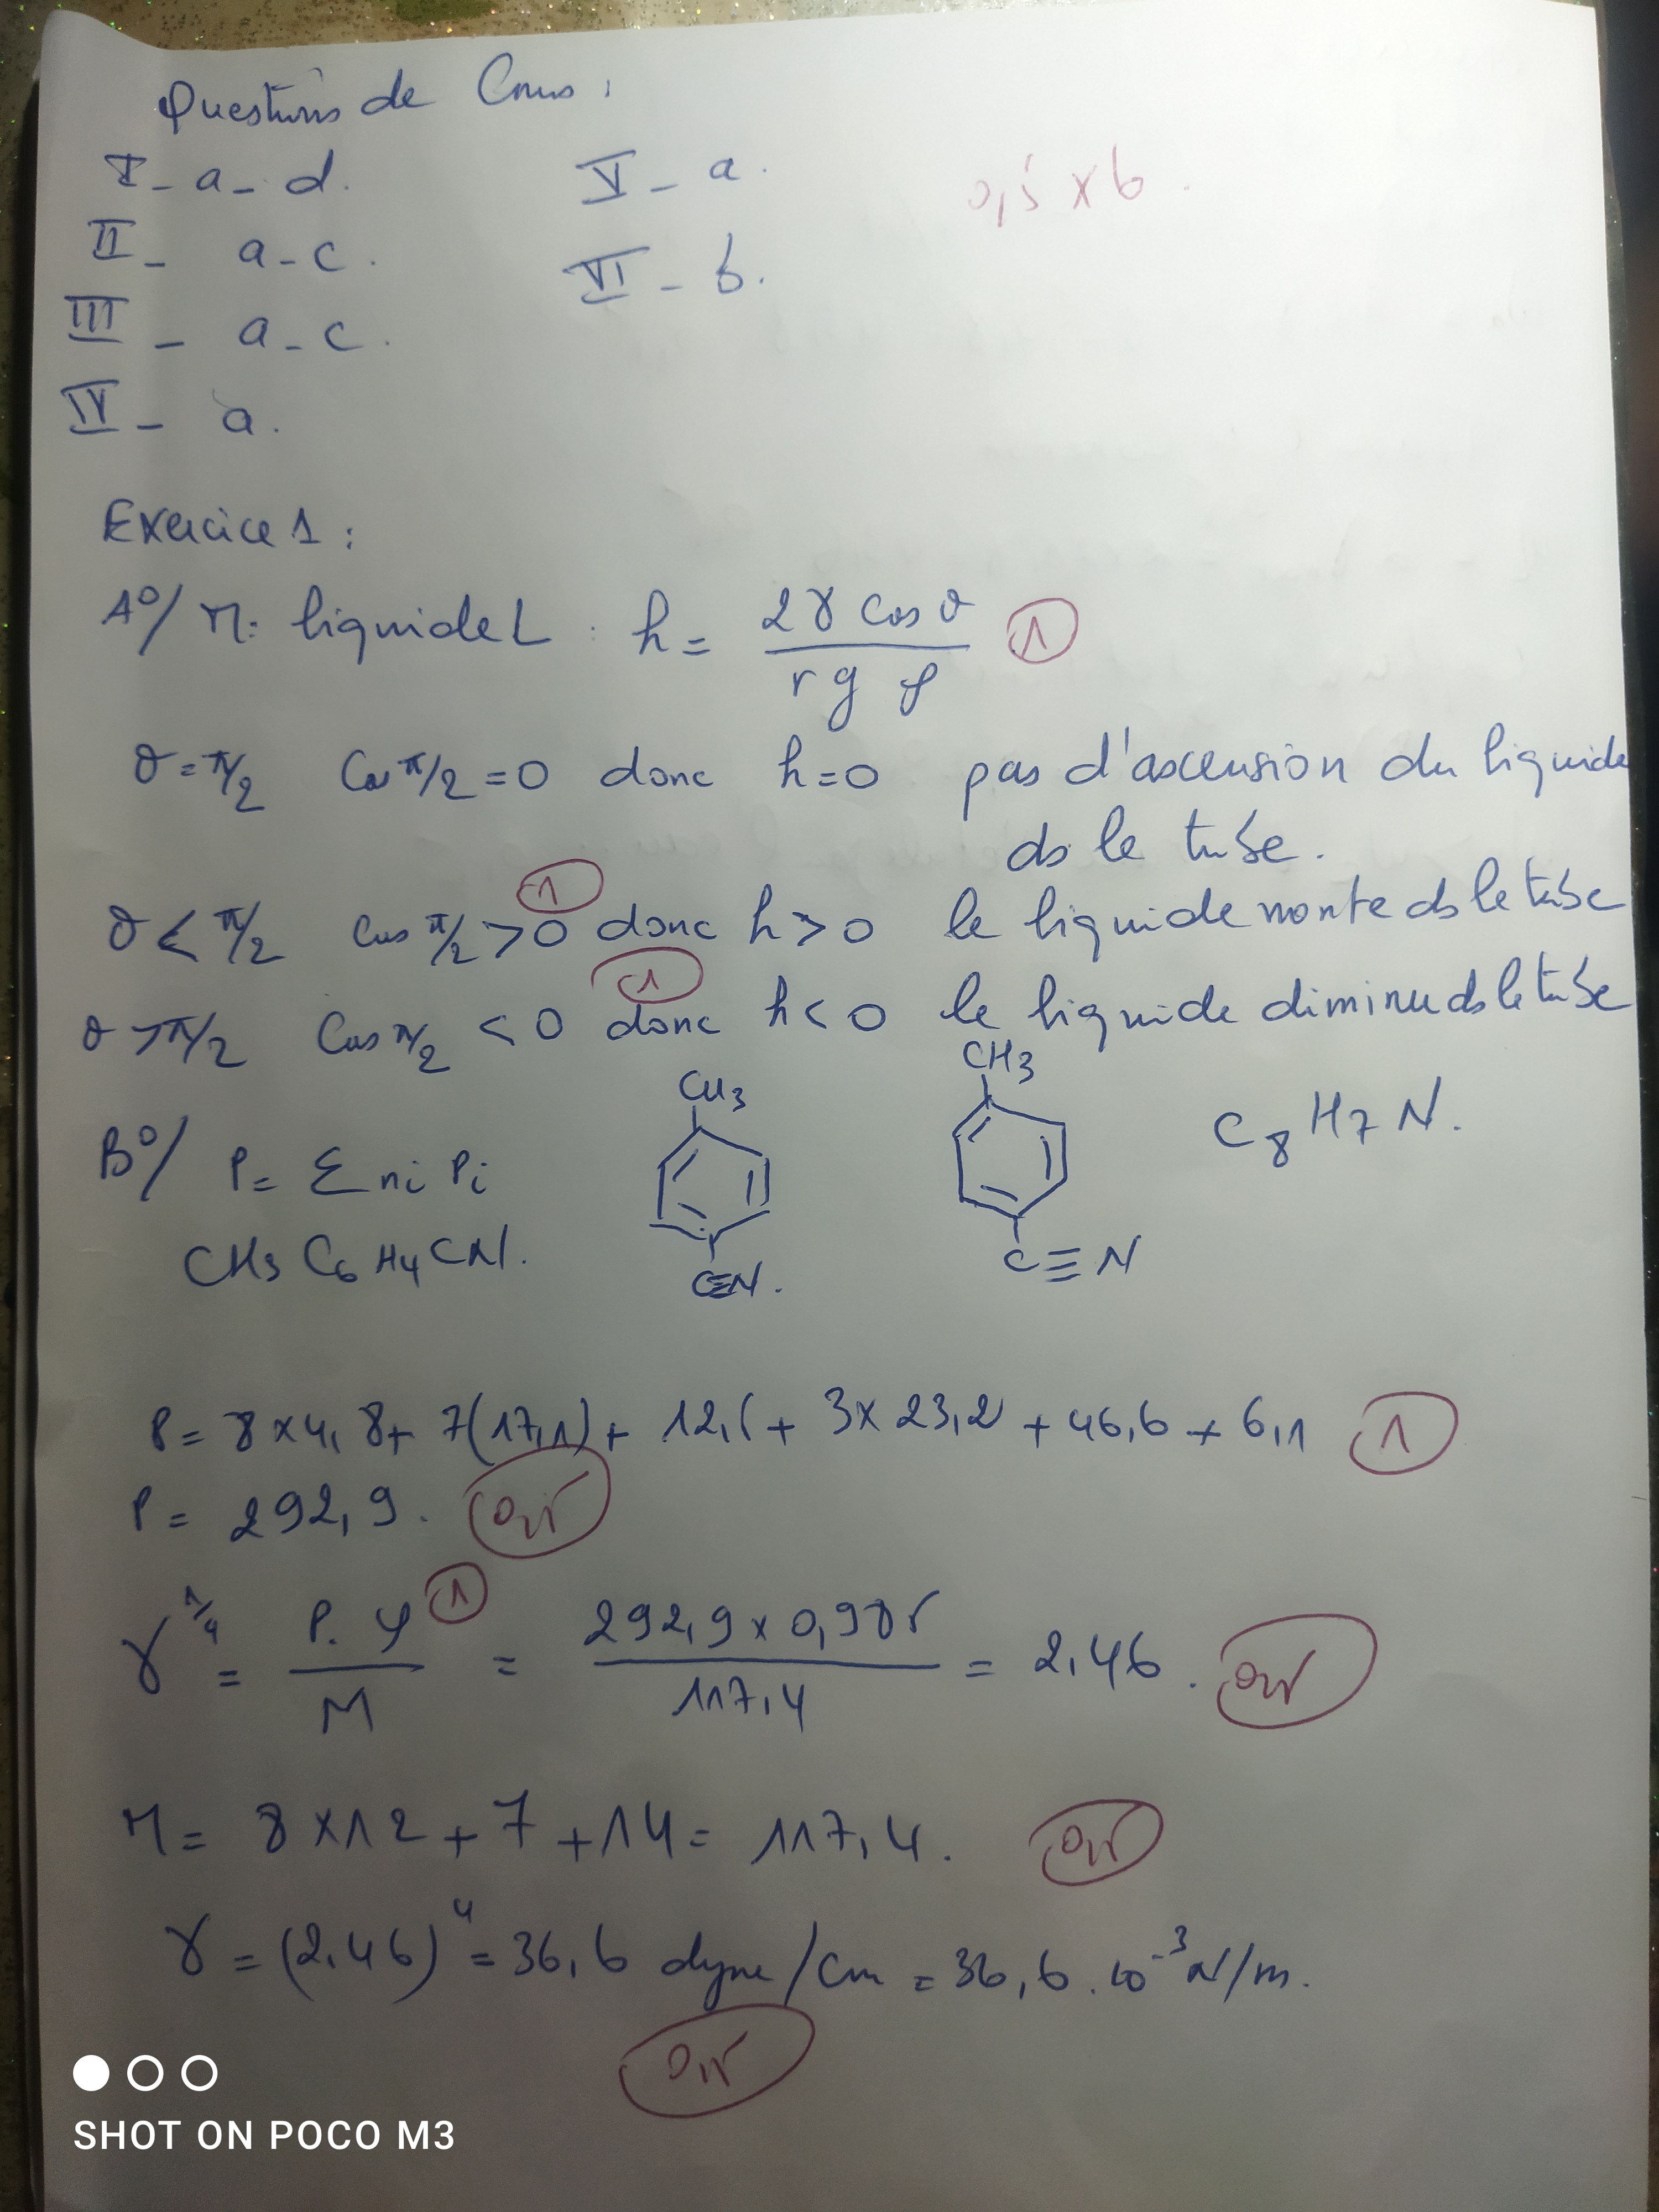 Questions de Cours :
I - a - d.
II - a - c.
III - a - c.
IV - a.
V - a.
VI - b.
0,5 x 6.
Exercice 1 :
A°/ M: liquide L : h = 2γ cos θ / r g ρ ①
θ = π/2 Cos π/2 = 0 donc h = 0 pas d'ascension du liquide
ds le tube.
θ < π/2 Cos π/2 > 0 donc h > 0 le liquide monte ds le tube ①
θ > π/2 Cos π/2 < 0 donc h < 0 le liquide diminue ds le tube ①
B°/ P = Σ ni Pi
CH3 C6 H4 CN.
CH3
C≡N.
CH3
C≡N
C8 H7 N.
P = 8 x 4,8 + 7(17,1) + 12,5 + 3 x 23,2 + 46,6 + 6,1 ①
P = 292,9. 0,5
γ^1/4 = P. ρ / M ① = 292,9 x 0,985 / 117,4 = 2,46. 0,5
M = 8 x 12 + 7 + 14 = 117,4. 0,5
γ = (2,46)^4 = 36,6 dyne/cm = 36,6 . 10^-3 N/m.
0,5
SHOT ON POCO M3